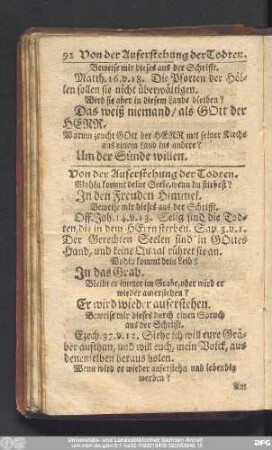 92 Von der Auferstehung der Todten.
Beweise mir dieses aus der Schrifft.
Matth. 16. v. 18. Die Pforten der Höl-
len sollen sie nicht überwältigen.
Wird sie aber in diesem Lande bleiben?
Das weiß niemand / als GOtt der
HERR.
Warum zeucht GOtt der HERR mit seiner Kirche
aus einem Land ins andere?
Um der Sünde willen.
Von der Auferstehung der Todten.
Wohin kommt deine Seele, wenn du stirbest?
In den Freuden Himmel.
Beweise mir dieses aus der Schrifft.
Off. Joh. 14. v. 13. Selig sind die Tod-
ten die in dem HErrn sterben. Sap. 3. v. 1.
Der Gerechten Seelen sind in GOttes
Hand, und keine Quaal rühret sie an.
Wohin kommt dein Leib?
In das Grab.
Bleibt er immer im Grabe, oder wird er
wieder auferstehen?
Er wird wieder auferstehen.
Beweise mir dieses durch einen Spruch
aus der Schrifft.
Ezech. 37. v. 12. Siehe ich will eure Grä-
ber aufthun, und will euch, mein Volck, aus
denenselben heraus holen.
Wenn wird er wieder auferstehn und lebendig
werden?
Am